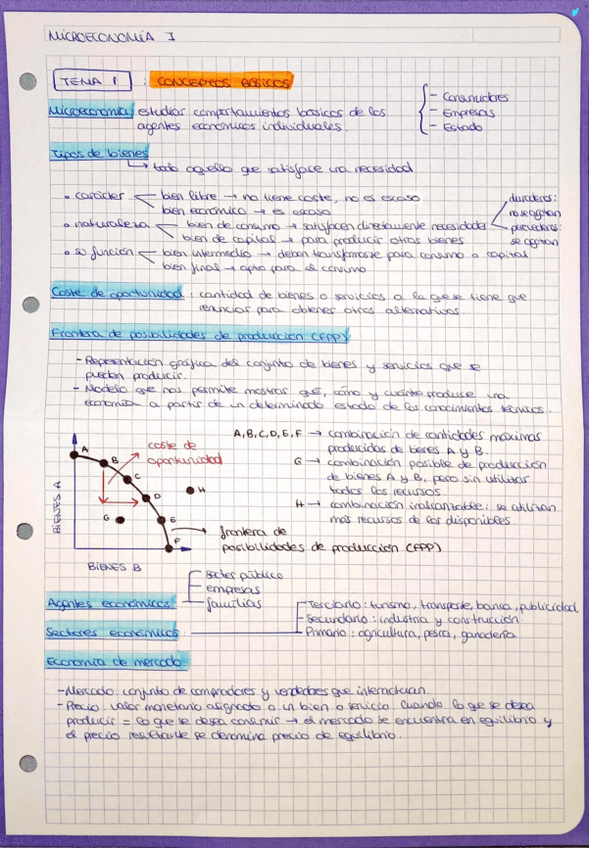 MICROECONOMÍA I
TEMA 1 : CONCEPTOS BÁSICOS
Microeconomía: estudiar comportamientos básicos de los
agentes económicos individuales.
- Consumidores
- Empresas
- Estado
Tipos de bienes
todo aquello que satisface una necesidad
• carácter
bien libre → no tiene coste, no es escaso
bien económico → es escaso
• naturaleza
bien de consumo → satisfacen directamente necesidades
duraderos:
no se agotan
perecederos:
se agotan
bien de capital → para producir otros bienes
• su función
bien intermedio → deben transformarse para consumo o capital
bien final → apto para el consumo
Coste de oportunidad: cantidad de bienes o servicios a la que se tiene que
renunciar para obtener otras alternativas.
Frontera de posibilidades de producción (FPP)
- Representación gráfica del conjunto de bienes y servicios que se
pueden producir.
- Modelo que nos permite mostrar qué, cómo y cuánto produce una
economía a partir de un determinado estado de los conocimientos técnicos.
BIENES A
A
B
C
D
E
F
G
H
coste de
oportunidad
frontera de
posibilidades de producción (FPP)
BIENES B
A, B, C, D, E, F → combinación de cantidades máximas
producidas de bienes A y B.
G → combinación posible de producción
de bienes A y B, pero sin utilizar
todos los recursos.
H → combinación inalcanzable: se utilizan
más recursos de los disponibles.
Agentes económicos:
sector público
empresas
familias
Sectores económicos:
Terciario: turismo, transporte, banca, publicidad
Secundario: industria y construcción
Primario: agricultura, pesca, ganadería
Economía de mercado:
- Mercado: conjunto de compradores y vendedores que interactúan.
- Precio: valor monetario asignado a un bien o servicio. Cuando lo que se desea
producir = lo que se desea consumir → el mercado se encuentra en equilibrio y
el precio resultante se denomina precio de equilibrio.